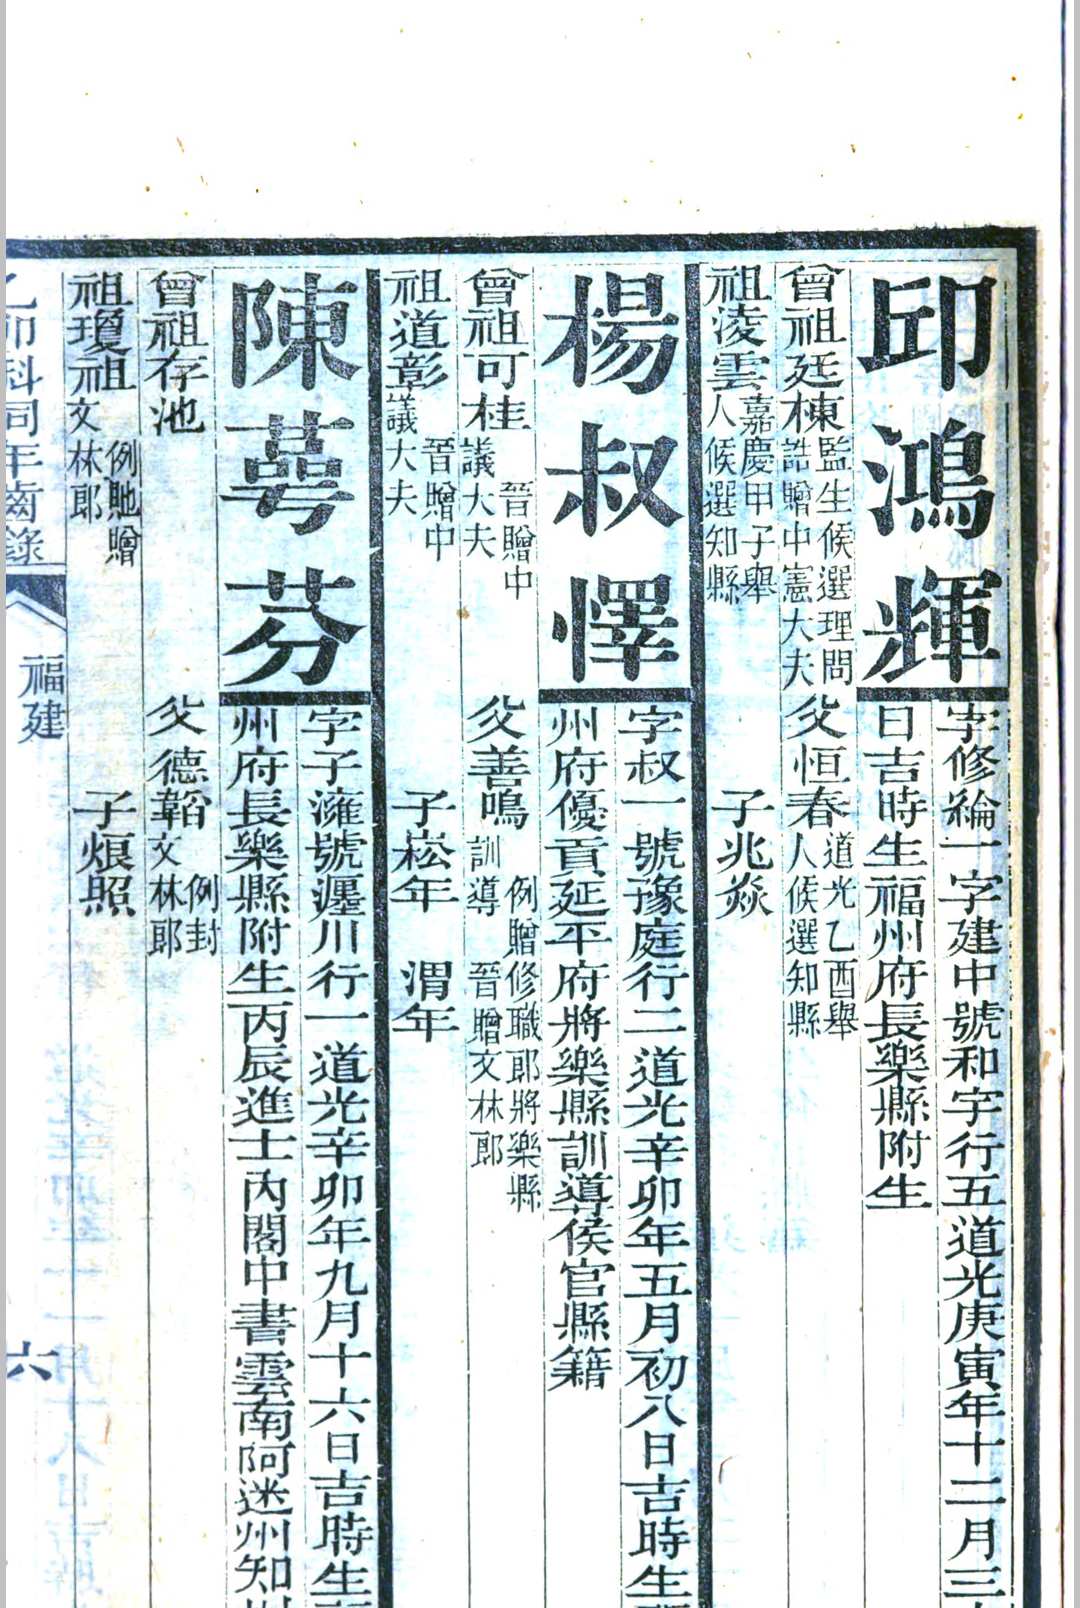 邱鴻輝
字修綸一字建中號和字行五道光庚寅年十二月三
日吉時生福州府長樂縣附生
曾祖廷棟監生候選理問誥贈中憲大夫
父恒春道光乙酉舉人候選知縣
祖淩雲嘉慶甲子舉人候選知縣
子兆焱
楊叔懌
字叔一號豫庭行二道光辛卯年五月初八日吉時生
州府優貢延平府將樂縣訓導侯官縣籍
曾祖可桂晉贈中議大夫
父善鳴例贈修職郎將樂縣訓導晉贈文林郎
祖道彰晉贈中議大夫
子崧年 渭年
陳蕚芬
字子濰號瀍川行一道光辛卯年九月十六日吉時生
州府長樂縣附生丙辰進士內閣中書雲南阿迷州知
曾祖存池
父德韜例封文林郎
祖瓊祖例貤贈文林郎
子烺照
乙卯科同年齒錄
福建
六